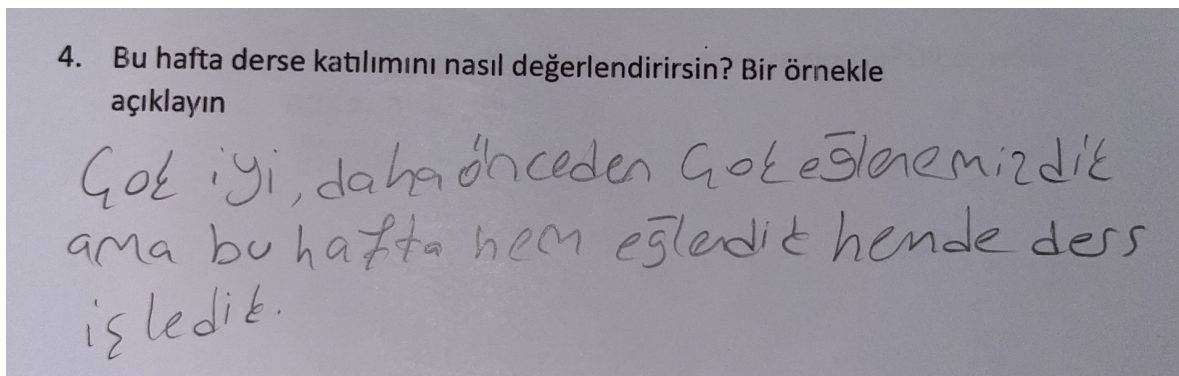 4. Bu hafta derse katılımını nasıl değerlendirirsin? Bir örnekle
açıklayın
Çok iyi, daha önceden Çok eğlenemizdik
ama bu hafta hem eğlendik hemde ders
işledik.